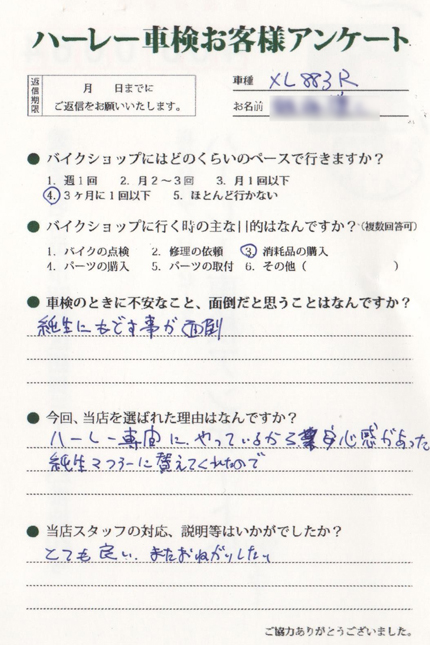 ハーレー車検お客様アンケート
返信期限 月 日までに ご返信をお願いいたします。
車種 XL883R
お名前
● バイクショップにはどのくらいのペースで行きますか？
1. 週1回 2. 月2～3回 3. 月1回以下
4. 3ヶ月に1回以下 5. ほとんど行かない
● バイクショップに行く時の主な目的はなんですか？(複数回答可)
1. バイクの点検 2. 修理の依頼 3. 消耗品の購入
4. パーツの購入 5. パーツの取付 6. その他 ( )
● 車検のときに不安なこと、面倒だと思うことはなんですか？
純生にもどす事が面倒
● 今回、当店を選ばれた理由はなんですか？
ハーレー専門に、やっているから安心感があった
純生マフラーに替えてくれたので
● 当店スタッフの対応、説明等はいかがでしたか？
とても良い、またおねがいしたい
ご協力ありがとうございました。